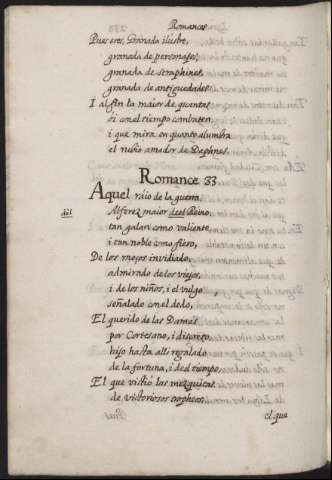 Romances
Pues eres, Granada ilustre,
granada de personages,
granada de seraphines,
granada de antiguedades.
I al fin la maior de quantas
oi con el tiempo combaten,
i que mira en quanto alumbra
el rubio amador de Daphnes.
Romance 33
Aquel raio de la guerra,
Alferez maior del Reino,
del
tan galan como valiente,
i tan noble como fiero,
De los moços invidiado,
admirado de los viejos,
i de los niños, i el vulgo
señalado con el dedo,
El querido de las Damas
por Cortesano, i discreto,
hijo hasta alli regalado
de la fortuna, i del tiempo,
El que vistiò las mezquitas
de victoriosos tropheos,
el que